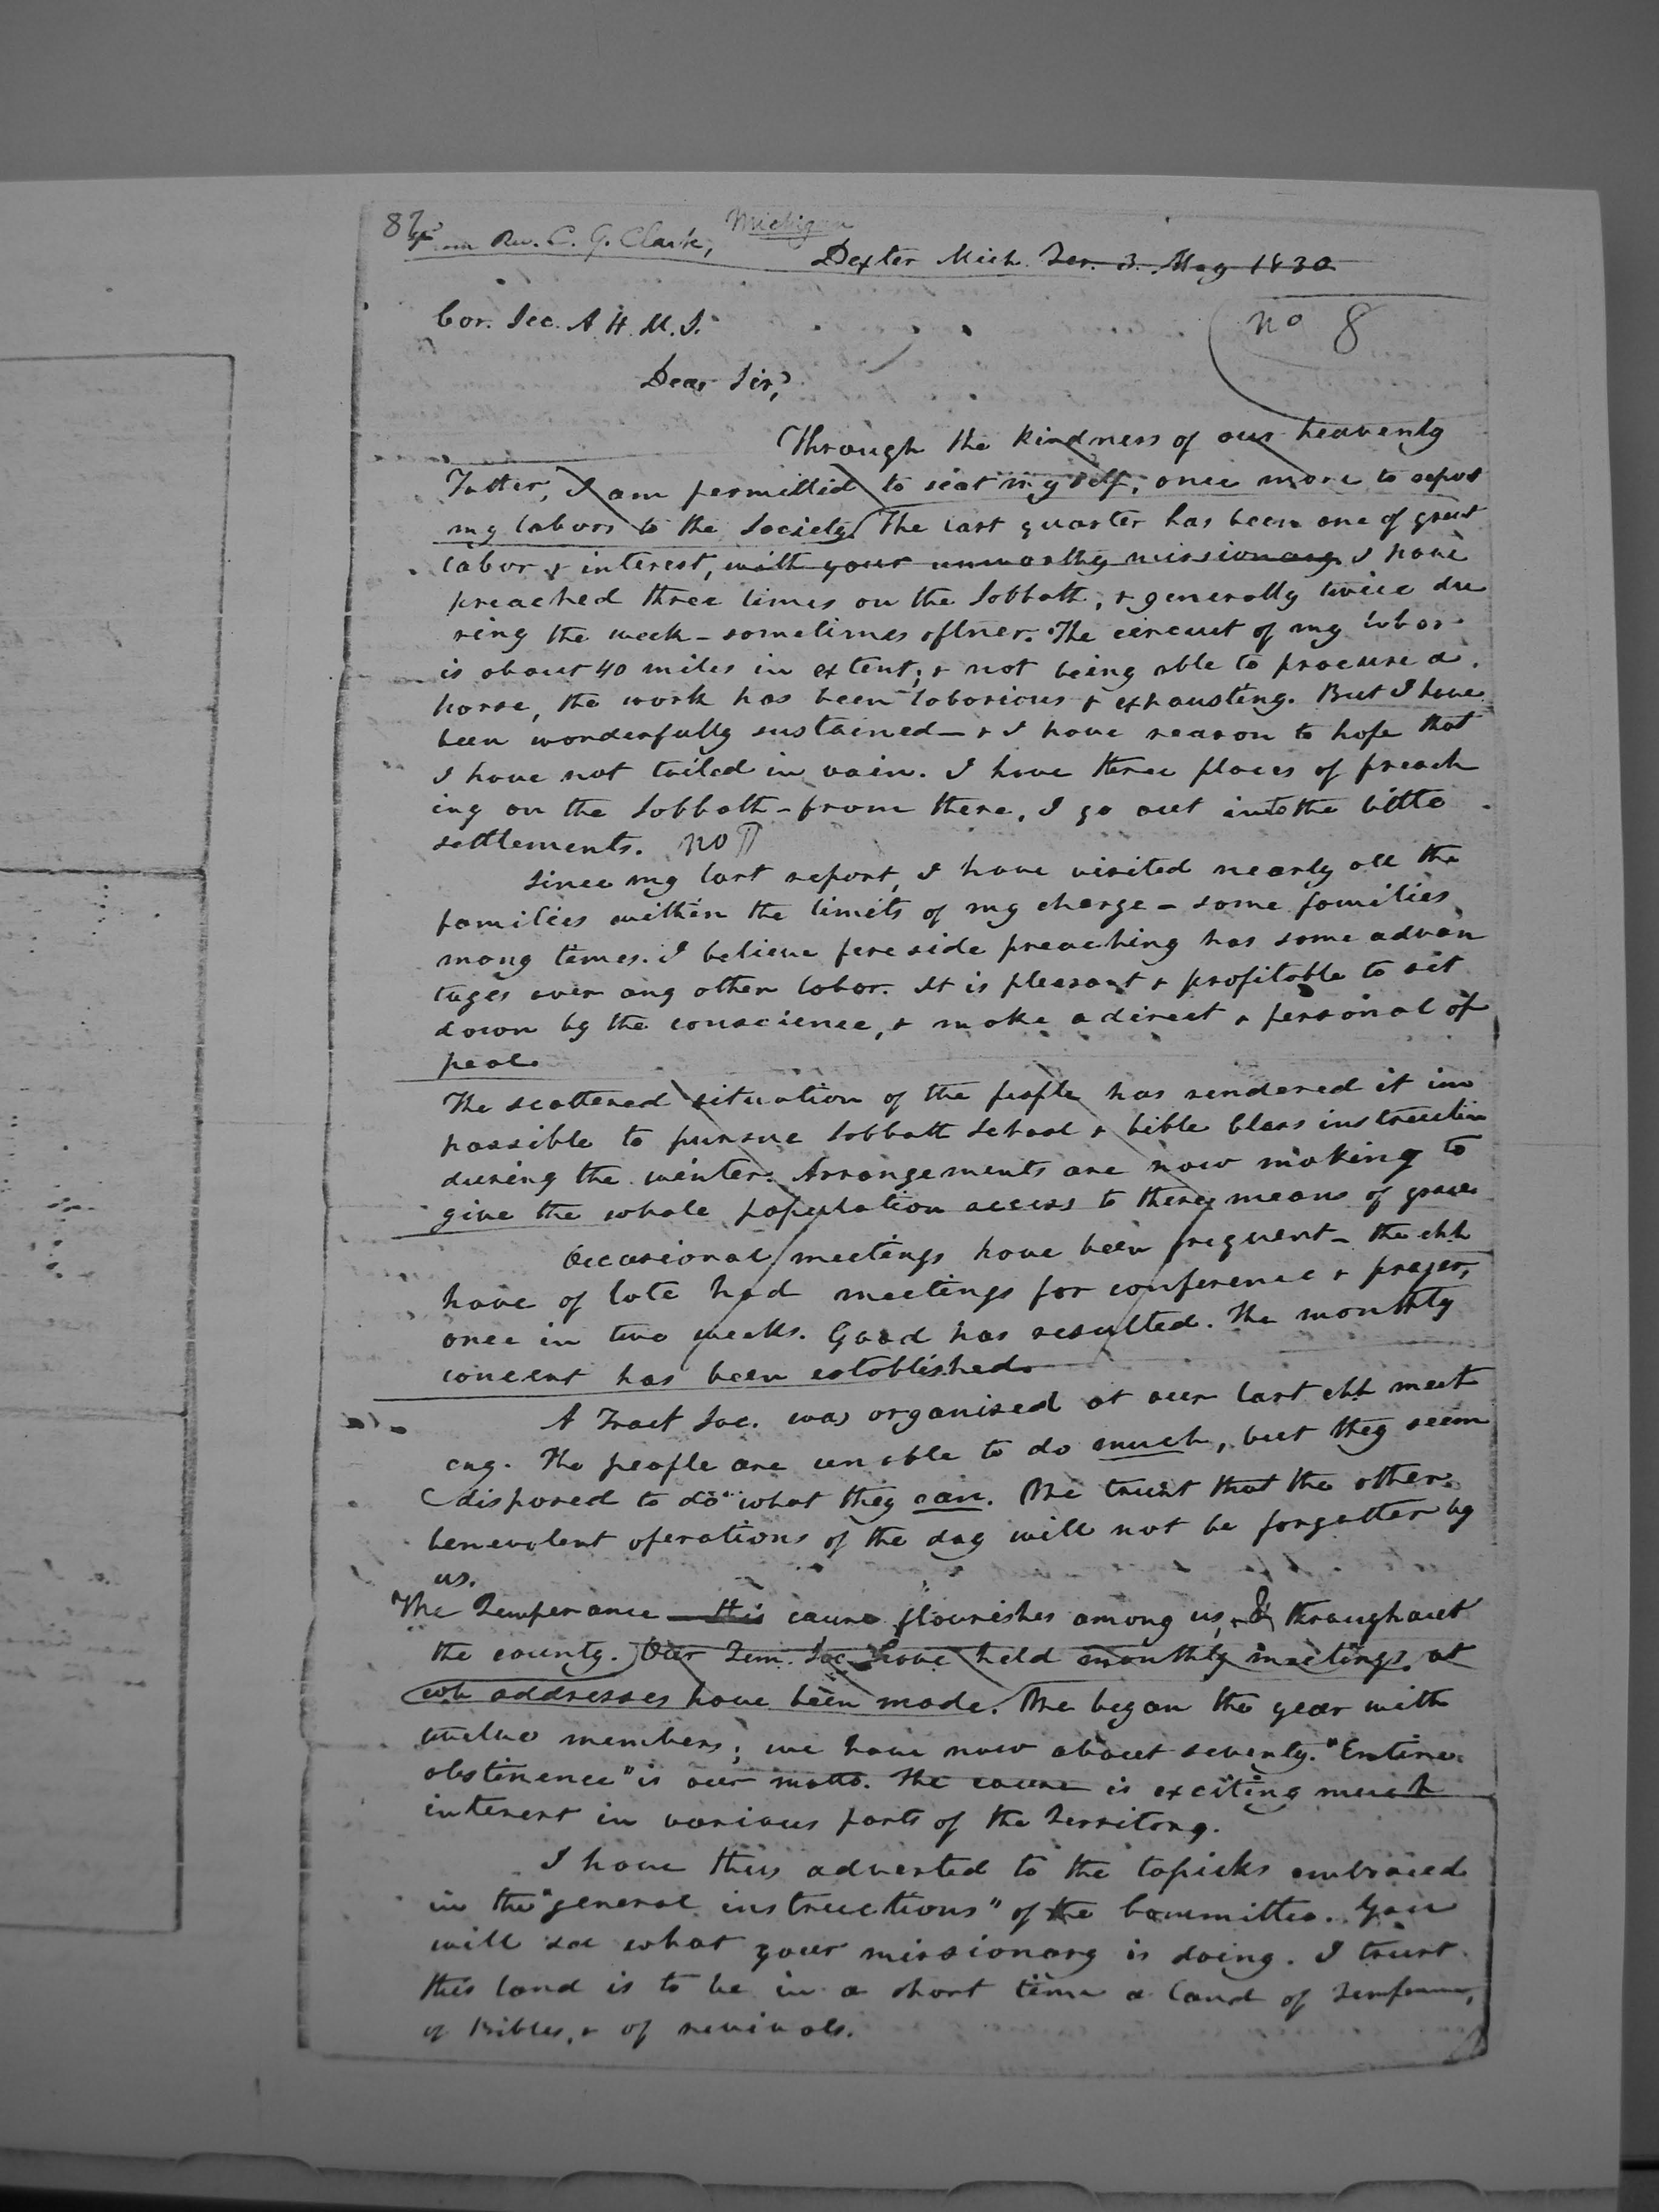 87
Michigan
From Rev. C. G. Clark,
Dexter Mich. Ter. 3. May 1830
Cor. Sec. A. H. M. S.
No 8
Dear Sir,
Through the kindness of our heavenly
Father, I am permitted to seat myself, once more to report
my labors to the Society. The last quarter has been one of great
labor & interest, with your unworthy missionary. I have
preached three times on the Sabbath, & generally twice du
ring the week - sometimes oftner. The circuit of my labor
is about 40 miles in extent; & not being able to procure a
horse, the work has been laborious & exhausting. But I have
been wonderfully sustained - & I have reason to hope that
I have not toiled in vain. I have three places of preach
ing on the Sabbath - from there, I go out into the little
settlements. No ¶
Since my last report, I have visited nearly all the
families within the limits of my charge - some families
many times. I believe fire side preaching has some advan
tages over any other labor. It is pleasant & profitable to sit
down by the conscience, & make a direct & personal ap
peal.
The scattered situation of the people has rendered it im
possible to pursue Sabbath School & bible class instruction
during the winter. Arrangements are now making to
give the whole population access to these means of grace.
Occasional meetings have been frequent - the chh
have of late had meetings for conference & prayer,
once in two weeks. Good has resulted. The monthly
concert has been established.
A Tract Soc. was organised at our last chh meet
ing. The people are unable to do much, but they seem
disposed to do what they can. We trust that the other
benevolent operations of the day will not be forgotten by
us.
The Temperance this cause flourishes among us, & throughout
the county. Our Tem. Soc. have held monthly meetings, at
wh addresses have been made. We began the year with
twelve members; we have now about seventy. "Entire
abstinence" is our motto. The cause is exciting much
interest in various parts of the Territory.
I have thus adverted to the topicks embraced
in the "general instructions" of the Committee. You
will see what your missionary is doing. I trust
this land is to be in a short time a land of Temperance,
of Bibles, & of revivals.